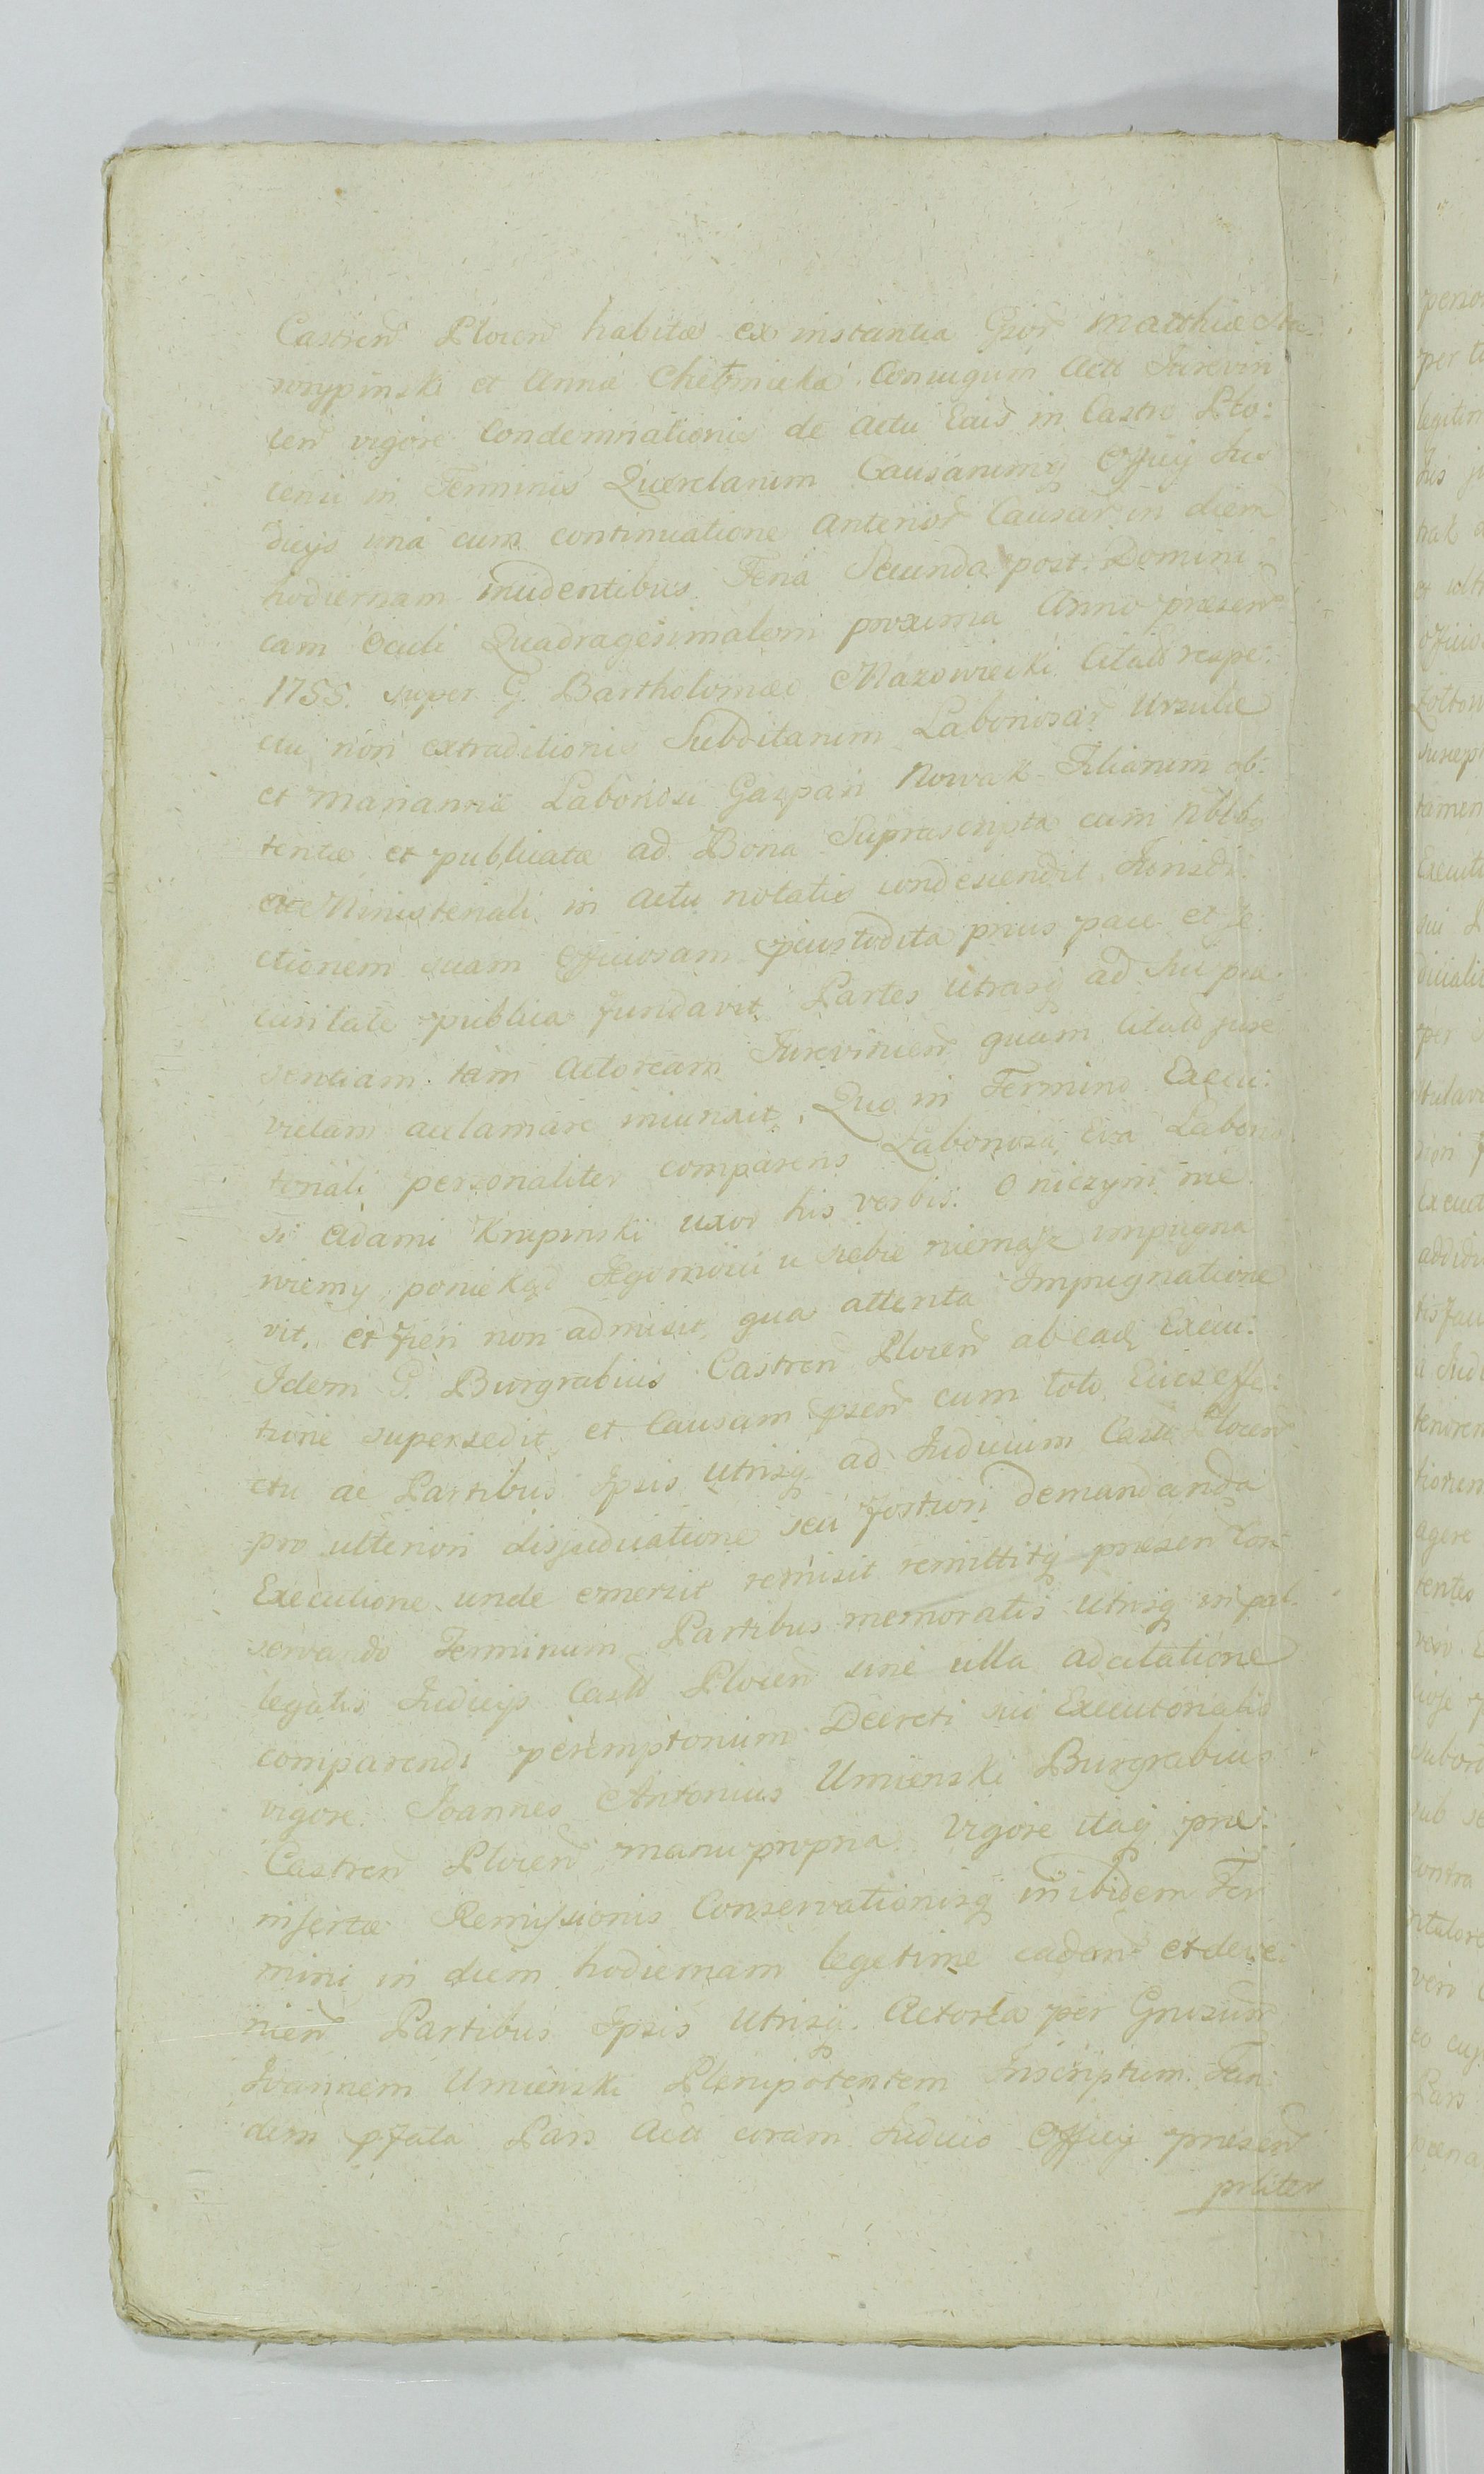 Castren Plocen habitæ ex instantia Gsor Matthiæ Sta-
worypinski et Anna Chełmicka Coniugum Acto Jurevin
cen vigore Condemnationis de Actu Eaid in Castro Plo:
censi in Terminis Querelarum Causarumq Officij Ju
dicijs unà cum continuatione Anterior Causar in diem
hodiernam incidentibus Feria Secunda post Domini:
cam Oculi Quadragesimalem proxima Anno præsen
1755. super G. Bartholomæo Mazowiecki Citato respe:
ctu non extraditionis Subditarum Laboriosar Ursulæ
et Mariannæ Laboriosi Gaspari Nowak Filiarum ob:
tentæ et publicatæ ad Bona Suprascripta cum Nbtbq
et Ministeriali in Actu notatis condescendit, Jurisdi:
ctionem suam Officiosam custodita prius pace et se
curitate publica fundavit, Partes Utrasq ad sui præ:
sentiam tam Actoream Jurevincen quam Citato jure
victam acclamare iniunxit. Quo in Termino Execu:
toriali personaliter comparens Laboriosa Eva Laborio
si Adami Krupinski uxor his verbis: O niczym nie
wiemy, poniekąd Jegomości u siebie niemasz impugna
vit, et fieri non admisit, qua attenta Impugnatione
Idem G. Burgrabius Castren Plocen ab eadq Execu:
tione supersedit, et Causam psen cum toto Eius effe:
ctu ac Partibus Ipsis Utrisq ad Judicium Castr Plocen
pro ulteriori disjudicatione seu fortiori demandanda
Executione unde emersit remisit remittitq præsen Con
servando Terminum Partibus memoratis Utrisq in præ
legatis Judicijs Castr Plocen sine ulla adcitatione
comparendi peremptorium Decreti sui Executorialis
vigore. Joannes Antonius Umienski Burgrabius
Castren Plocen manu propria. Vigore itaq præ:
insertæ Remissionis Conservationisq inibidem Ter
mini in diem hodiernam legetime caden et deve:
nien Partibus Ipsis Utrisq. Actorea per Gnrosum
Joannem Umienski Plenipotentem Inscriptum. Tan
dem pfata Pars Acto coram Judicio Officij præsen
pnliter